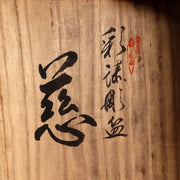 彩漆彫盆
慈